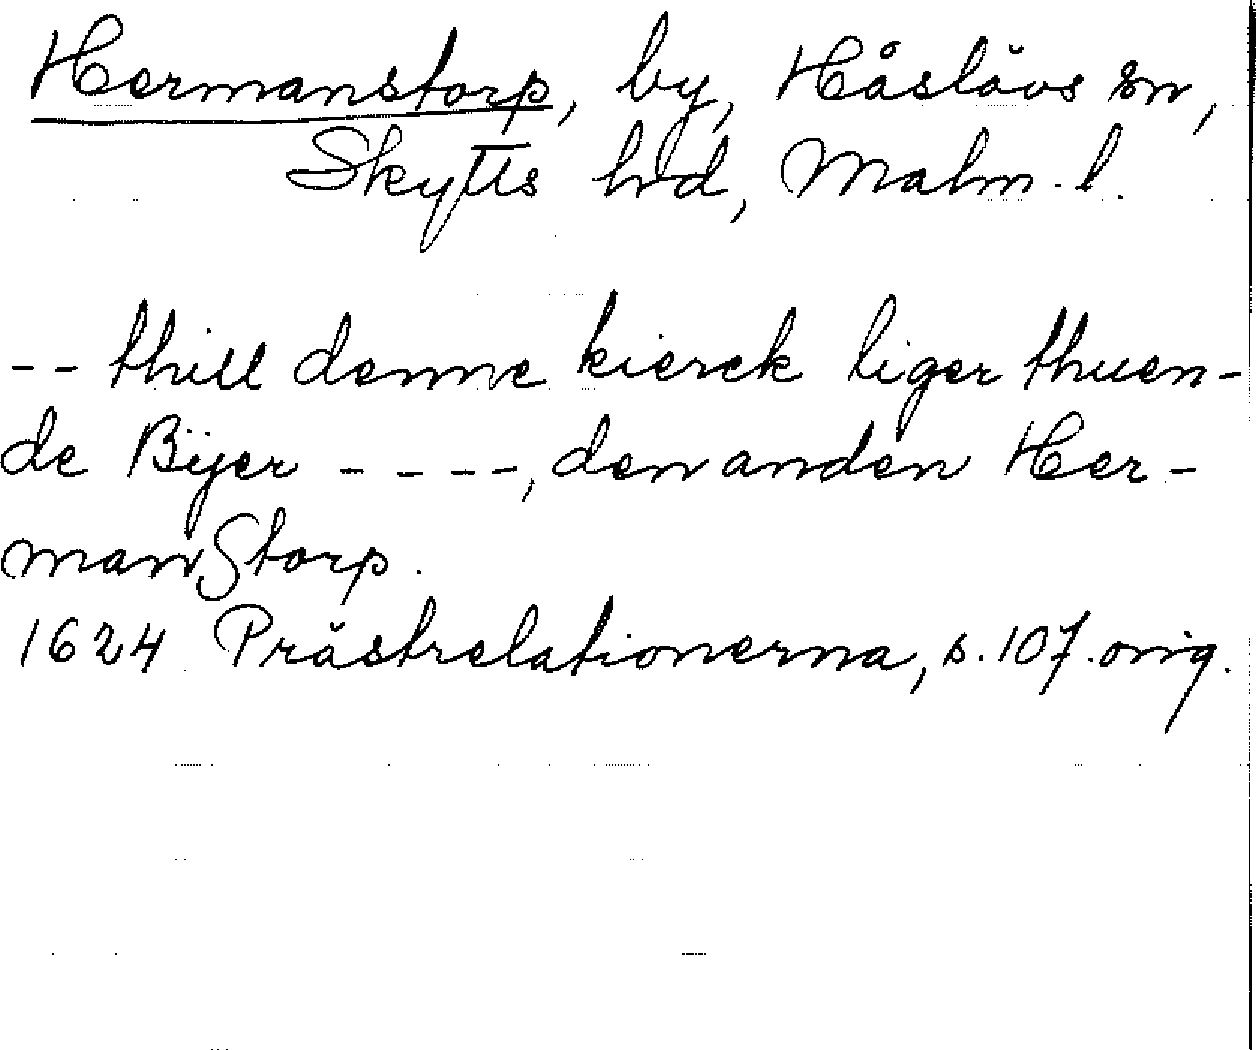 Hermanstorp, by, Håslövs sn,
Skytts hd, Malm. l.
-- thill denne kierck liger thuen-
de Bÿer ----, den anden Her-
manStorp.
1624 Prästrelationerna, s. 107. orig.